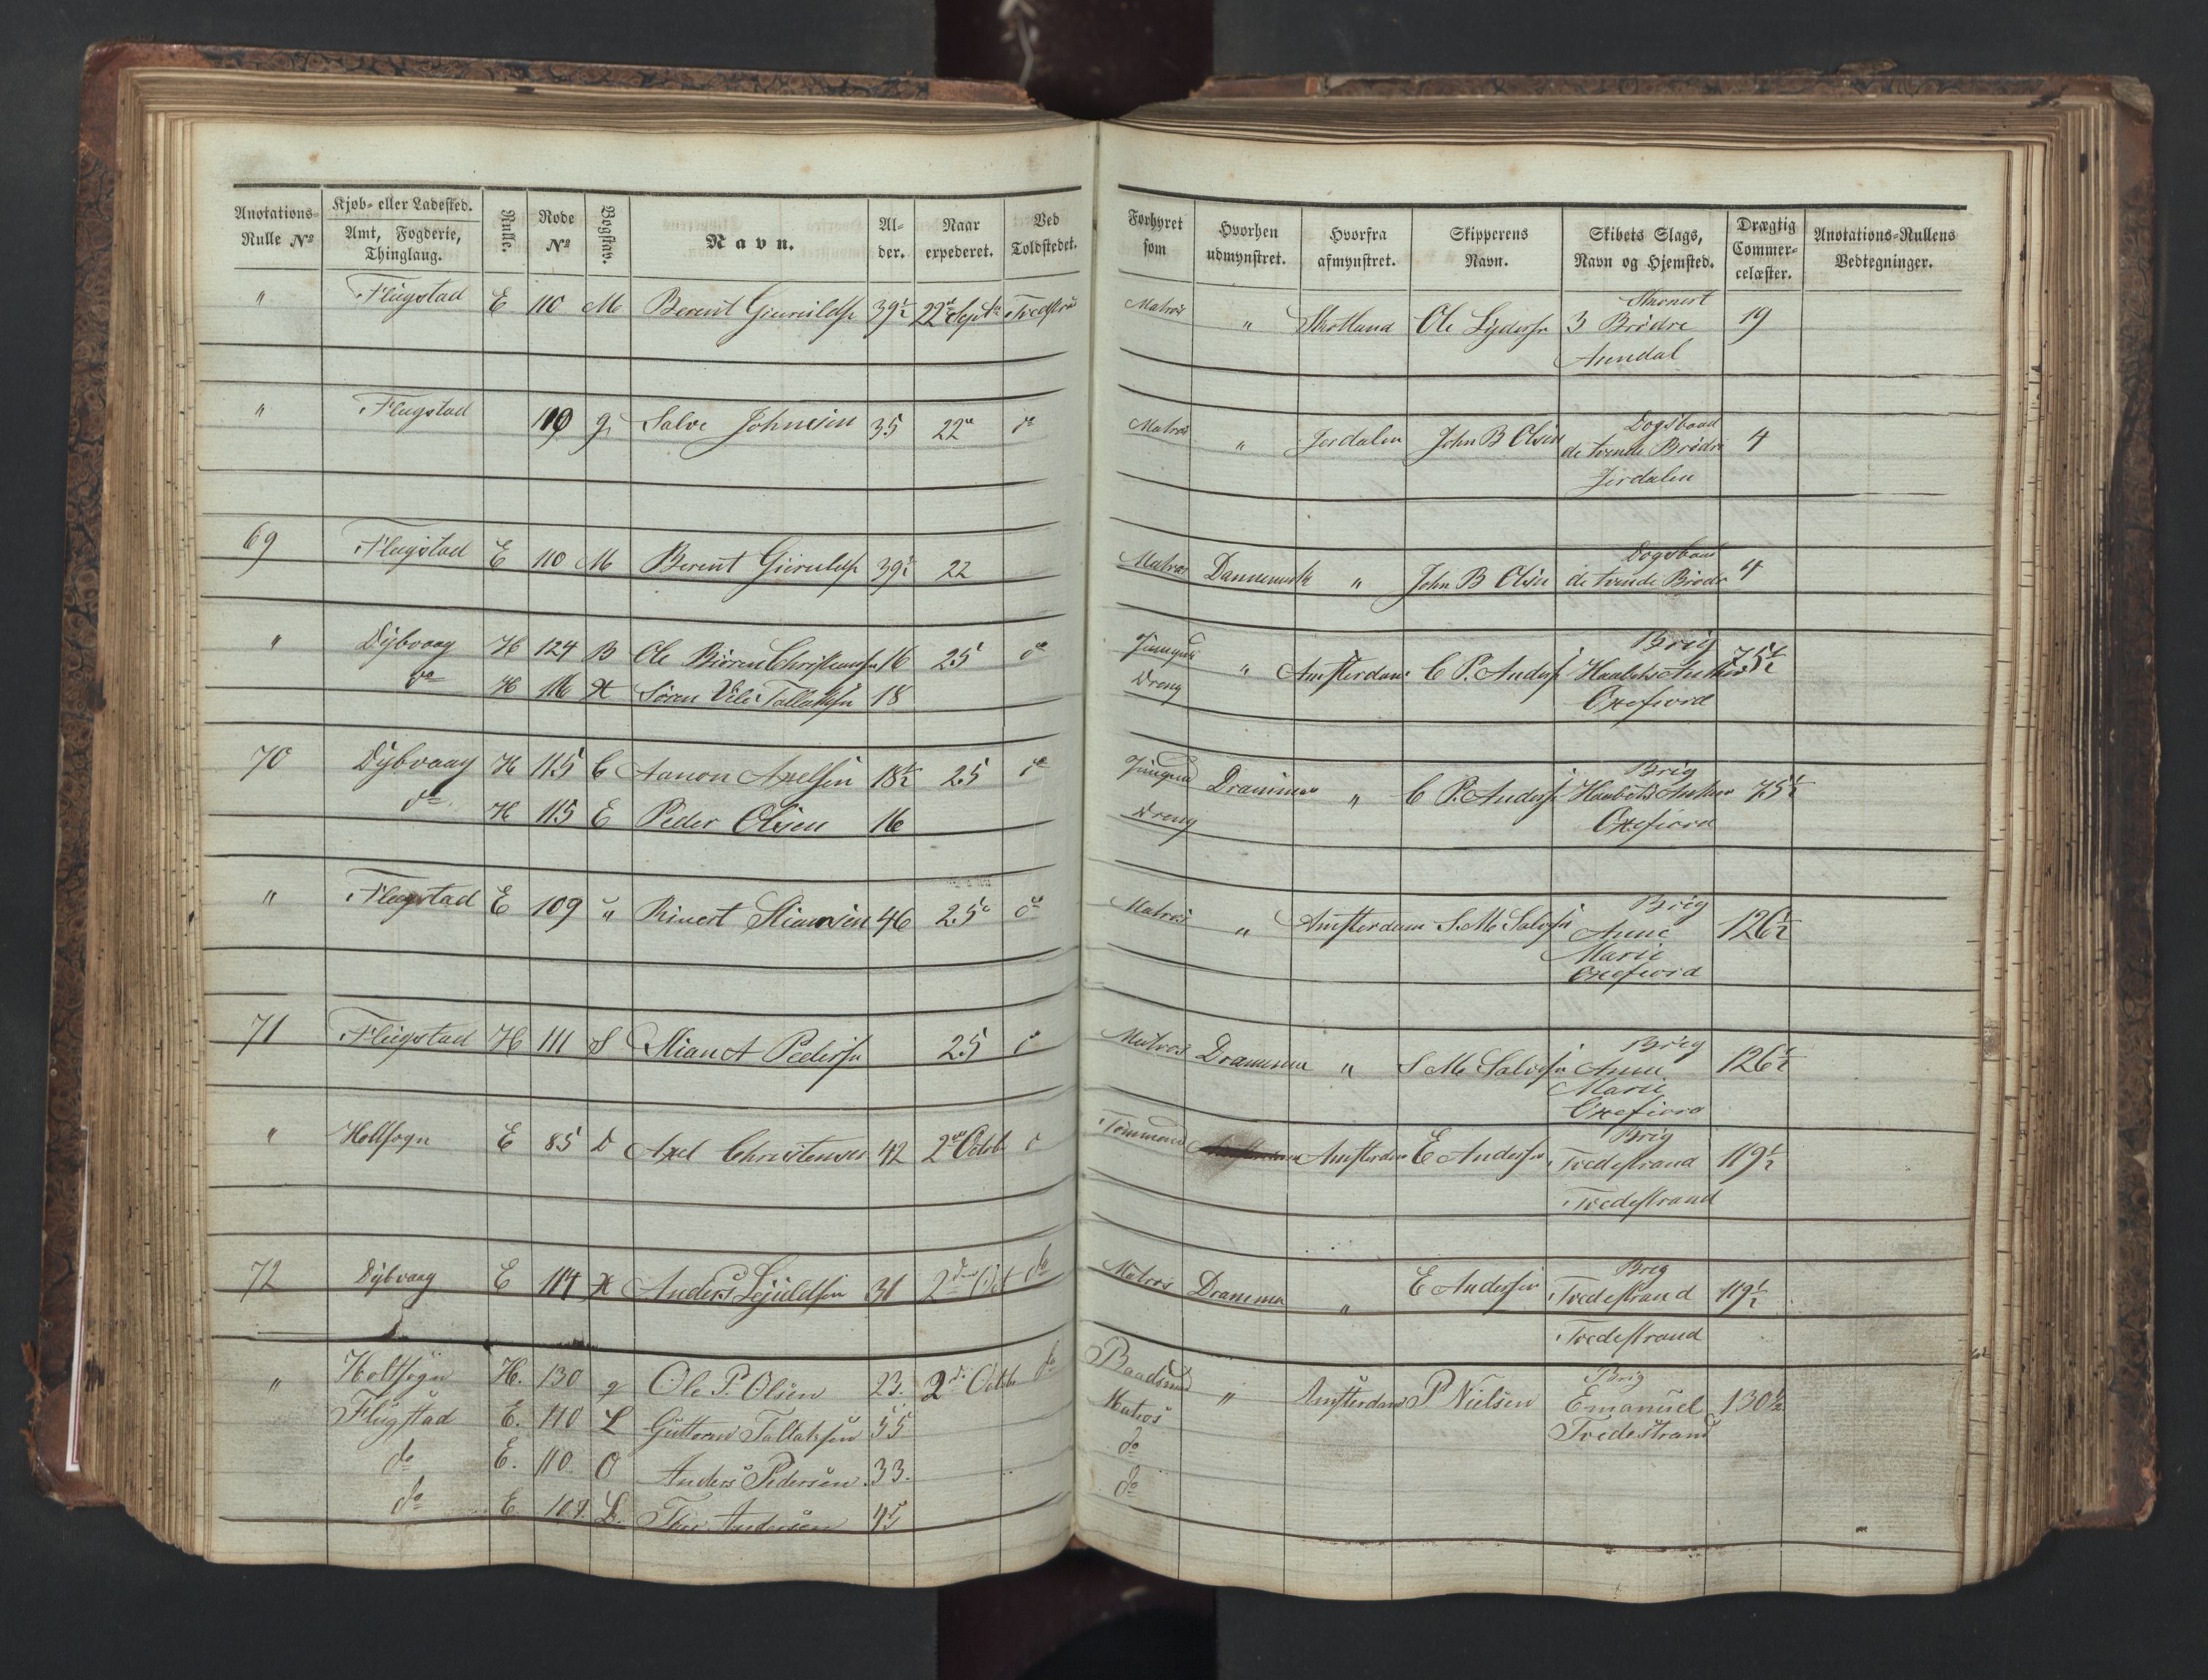 Anotations- Rulle № | Kjøb- eller Ladested. Amt, Fogderie, Thinglaug. | Rulle. | Rode № | Bogstav. | Navn. | Al- der. | Naar expederet. | Ved Toldstedet. | Forhyret som | Hvorhen udmynstret. | Hvorfra afmynstret. | Skipperens Navn. | Skibets Slags, Navn og Hjemsted. | Drægtig Commer- celæster. | Anotations-Rullens Vedtegninger.
" Flugstad E 110 M Berent 39½ 22de Septbr Matros " Skotland Ole 3 Brødre Arendal 19
" Flugstad g Salve Johnsen 35 22de do Matros " Jordalen John B Olsen de tvende Brødre Jordalen 4
69 Flugstad E 110 M Berent 39½ 22 Matros Danmark " John B Olsen de tvende Brødre 4
" Dybvaag H 124 B Ole 16 25 do Jungmd " Amsterdam C P. Anders Brig Haabets Anker Oxefiord 75½
do H 116 Søren Tallaksen 18 Dreng
70 Dybvaag H 115 C Aanon Axelsen 18½ 25 do Jungmd Drammen " C P. Anders Brig Haabets Anker Oxefiord 75½
do H 115 E Peder Olsen 16 Dreng
" Flugstad E 109 " 46 25 do Matros " Amsterdam S. M. Salvesen Brig Anne Marie Oxefiord 126½
71 Flugstad H 111 S Stian A Pedersen 25 do Matros Drammen " S M Salvesen Brig Anne Marie Oxefiord 126½
" Holtsogn E 85 D Axel Christensen 42 2de Octb Tømmermd Amsterdam E Andersen Brig Tvedestrand Tvedestrand 119½
72 Dybvaag E 114 Anders 2den Oct do Matros Drammen " E Andersen Brig Tvedestrand Tvedestrand 119½
" Holtsogn H. 130 g Ole P. Olsen 23. 2de Octb do Baadsmd " Amsterdam P Nielsen Brig Emanuel Tvedestrand 130½
Flugstad E. 110 L Guttorm Tallaksen 55 Matros
do E. 110 O Anders Pedersen 33. do
do E. L. Andersen 45 do